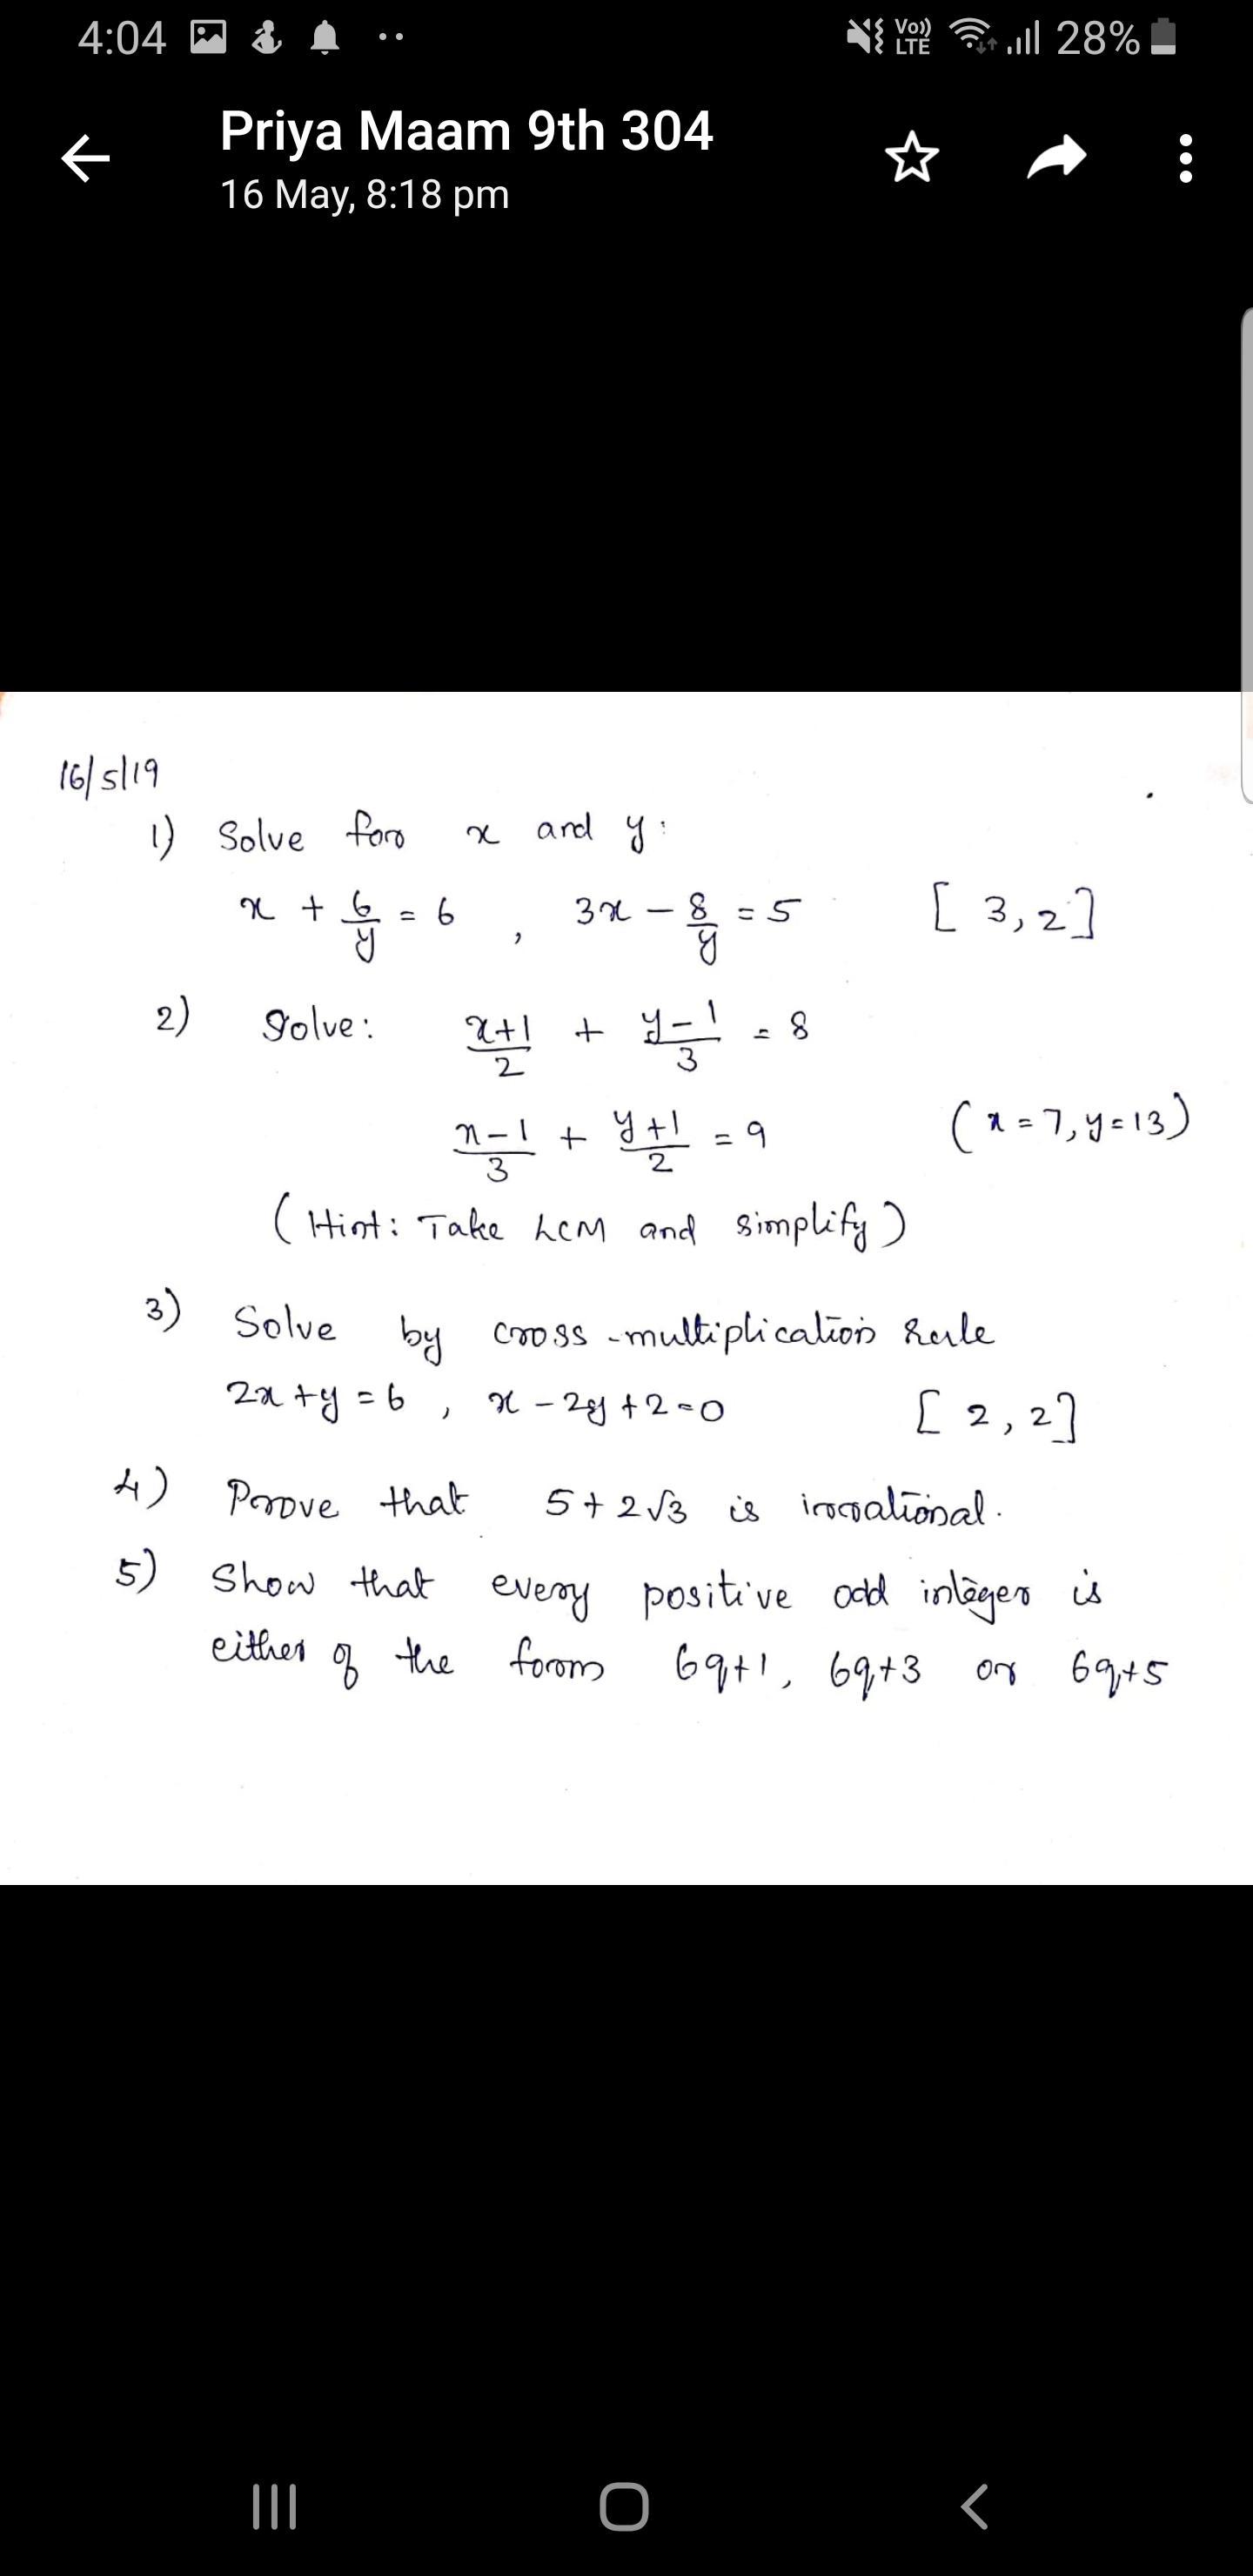 4:04 Vo)) LTE 28%
Priya Maam 9th 304
16 May, 8:18 pm
16/5/19
1) Solve for x and y:
x + 6/y = 6 , 3x - 8/y = 5 [ 3, 2 ]
2) Solve: x+1/2 + y-1/3 = 8
x-1/3 + y+1/2 = 9 ( x = 7, y = 13 )
( Hint: Take LCM and simplify )
3) Solve by cross -multiplication Rule
2x + y = 6 , x - 2y + 2 = 0 [ 2, 2 ]
4) Prove that 5 + 2√3 is irrational.
5) Show that every positive odd integer is
either of the form 6q+1, 6q+3 or 6q+5